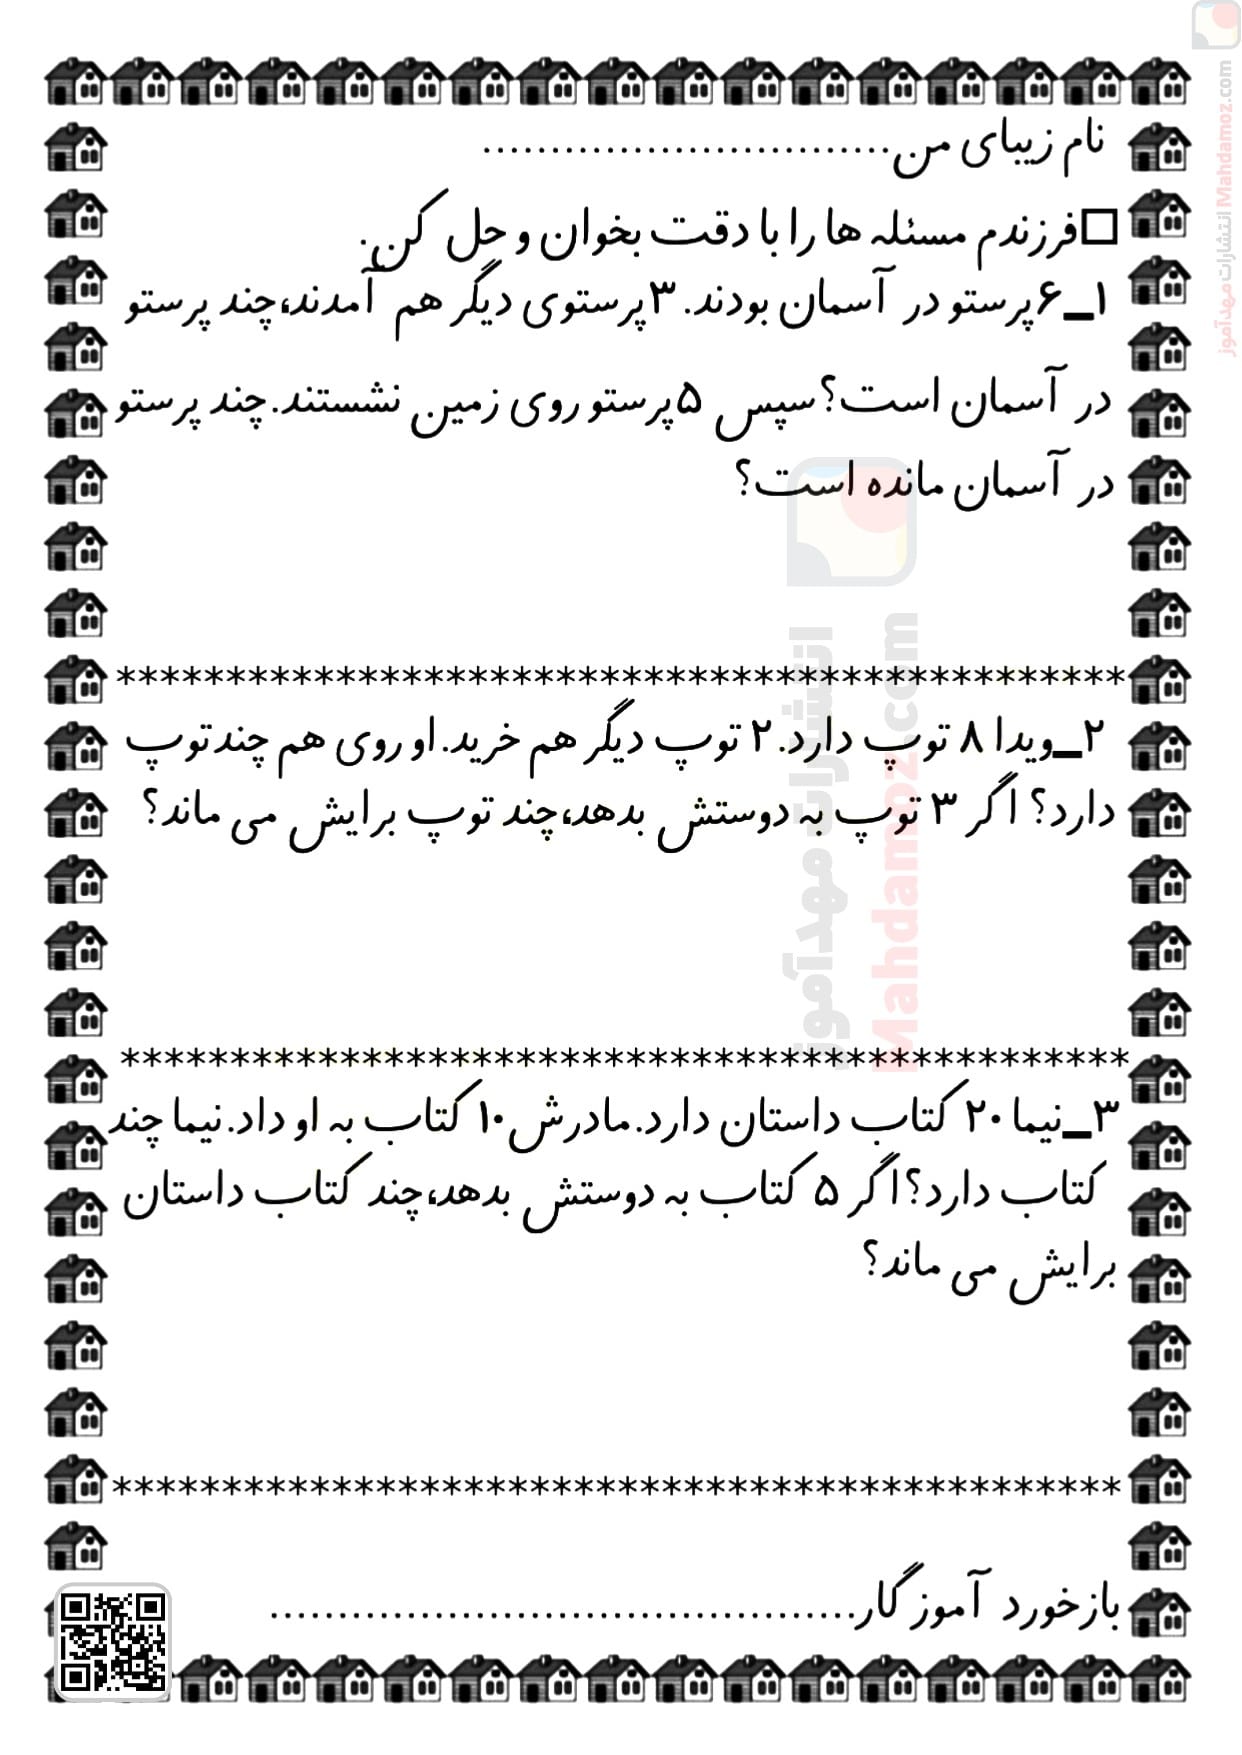 نام زیبای من..............................
□فرزندم مسئله ها را با دقت بخوان و حل کن.
۱_۶پرستو در آسمان بودند. ۳پرستوی دیگر هم آمدند،چند پرستو
در آسمان است؟سپس ۵پرستو روی زمین نشستند.چند پرستو
در آسمان مانده است؟
**********************************************
۲_ویدا ۸ توپ دارد. ۲ توپ دیگر هم خرید.او روی هم چندتوپ
دارد؟ اگر ۳ توپ به دوستش بدهد،چند توپ برایش می ماند؟
**********************************************
۳_نیما ۲۰ کتاب داستان دارد.مادرش۱۰ کتاب به او داد.نیما چند
کتاب دارد؟اگر ۵ کتاب به دوستش بدهد،چند کتاب داستان
برایش می ماند؟
**********************************************
بازخورد آموزگار...........................................
انتشارات مهدآموز
Mahdamoz.com
انتشارات مهدآموز Mahdamoz.com